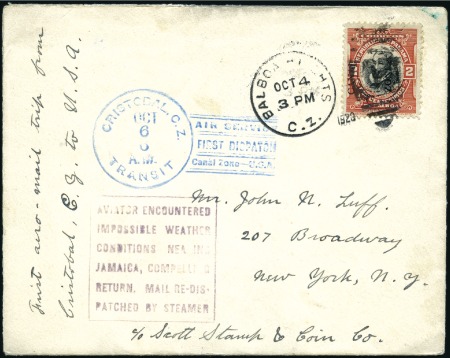 First aero-mail trip from
Cristobal, C. Z. to U. S. A.
CRISTOBAL, C.Z.
OCT
6
A.M.
TRANSIT
AIR SERVICE
FIRST DISPATCH
Canal Zone—U.S.A.
BALBOA HEIGHTS
OCT 4
3 PM
C. Z.
1920
2
AVIATOR ENCOUNTERED
IMPOSSIBLE WEATHER
CONDITIONS NEARING
JAMAICA, COMPELLING
RETURN. MAIL RE-DIS-
PATCHED BY STEAMER
Mr. John N. Luff.
207 Broadway
New York, N. Y.
c/o Scott Stamp & Coin Co.